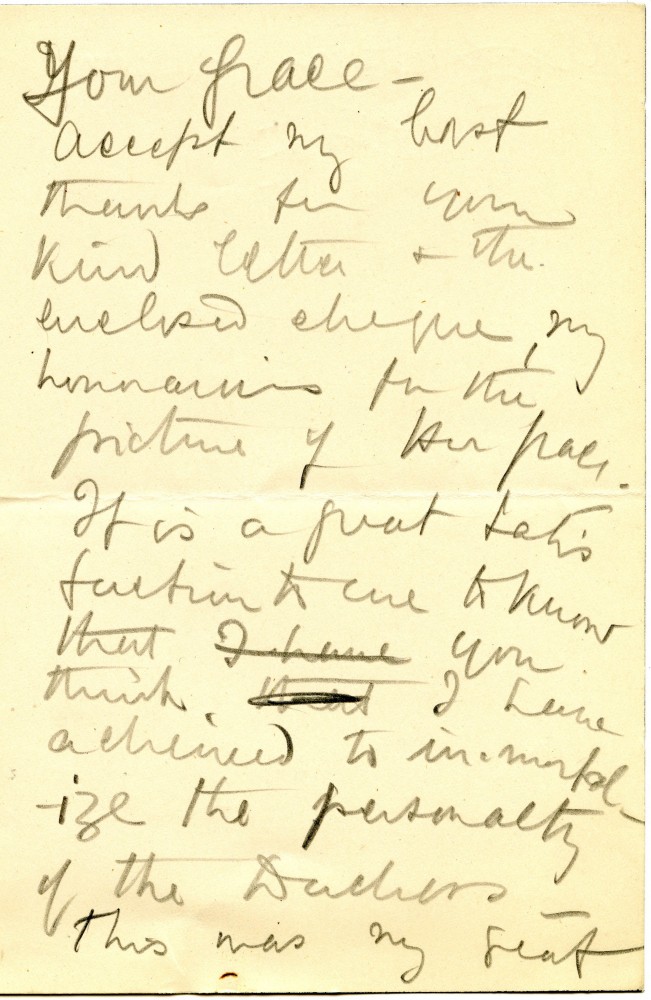 Your Grace -
accept my best
thanks for your
kind letter & the
enclosed cheque, my
honorarium for the
picture of Her Grace.
It is a great satis
faction to me to know
that I have you
think that I have
achieved to immortal-
-ize the personalty
of the Duchess
This was my great